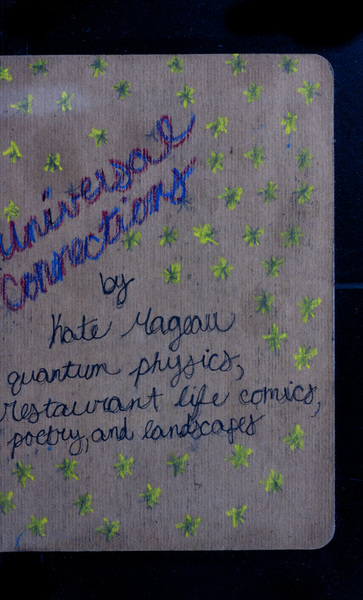 Universal
Connections
by
Kate Mageau
quantum physics,
restaurant life comics,
poetry, and landscapes